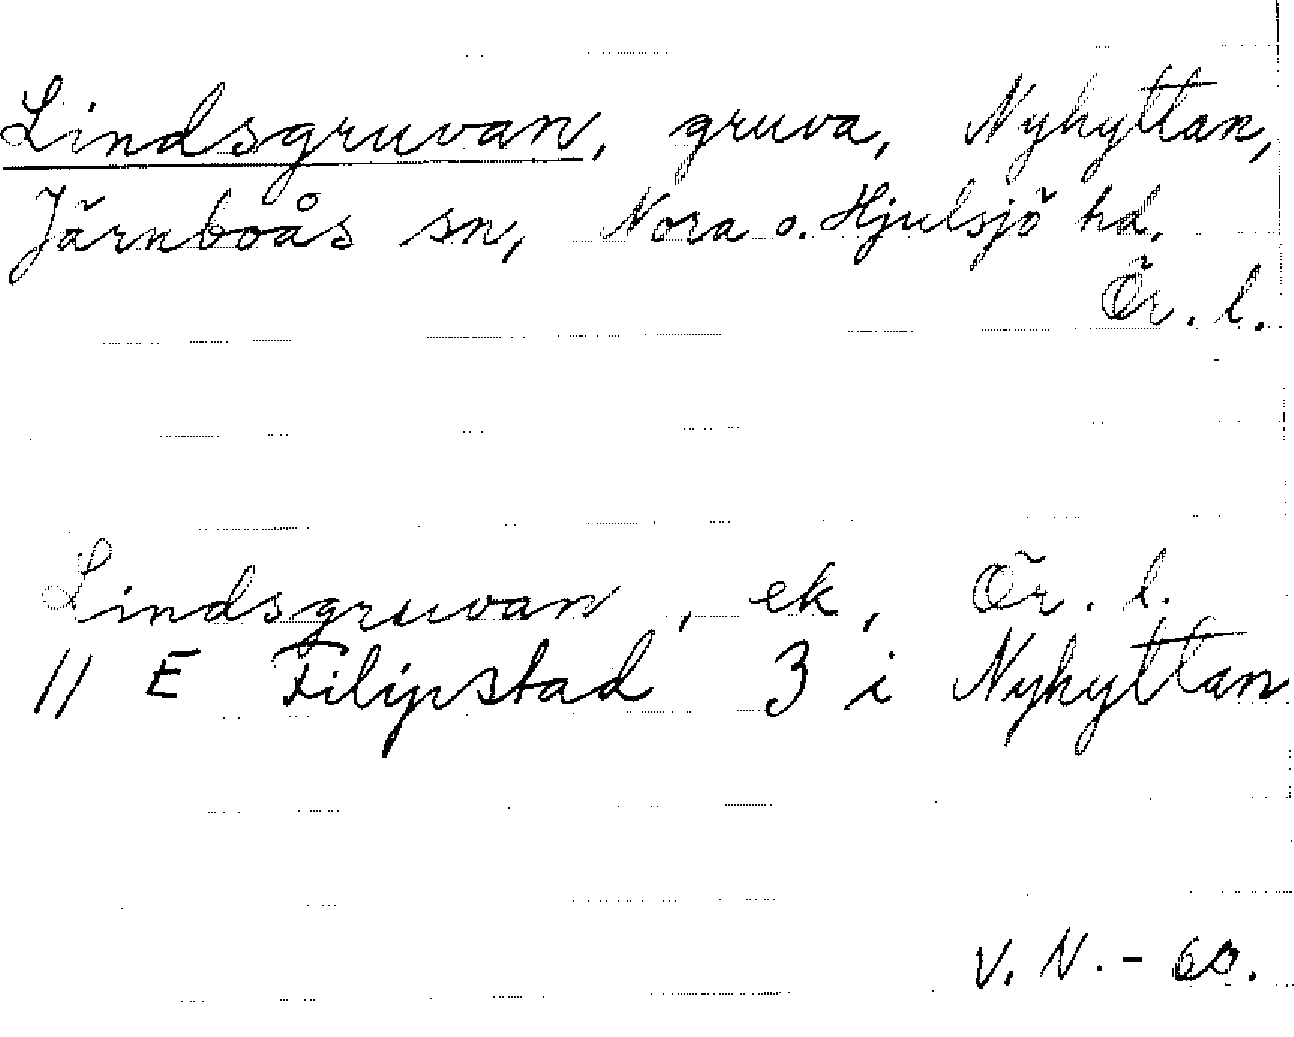 Lindsgruvan, gruva, Nyhyttan,
Järnboås sn, Nora o. Hjulsjö hd.
Ör. l.
Lindsgruvan, ek, Ör. l.
11 E Filipstad 3 i Nyhyttan
V. N. - 60.